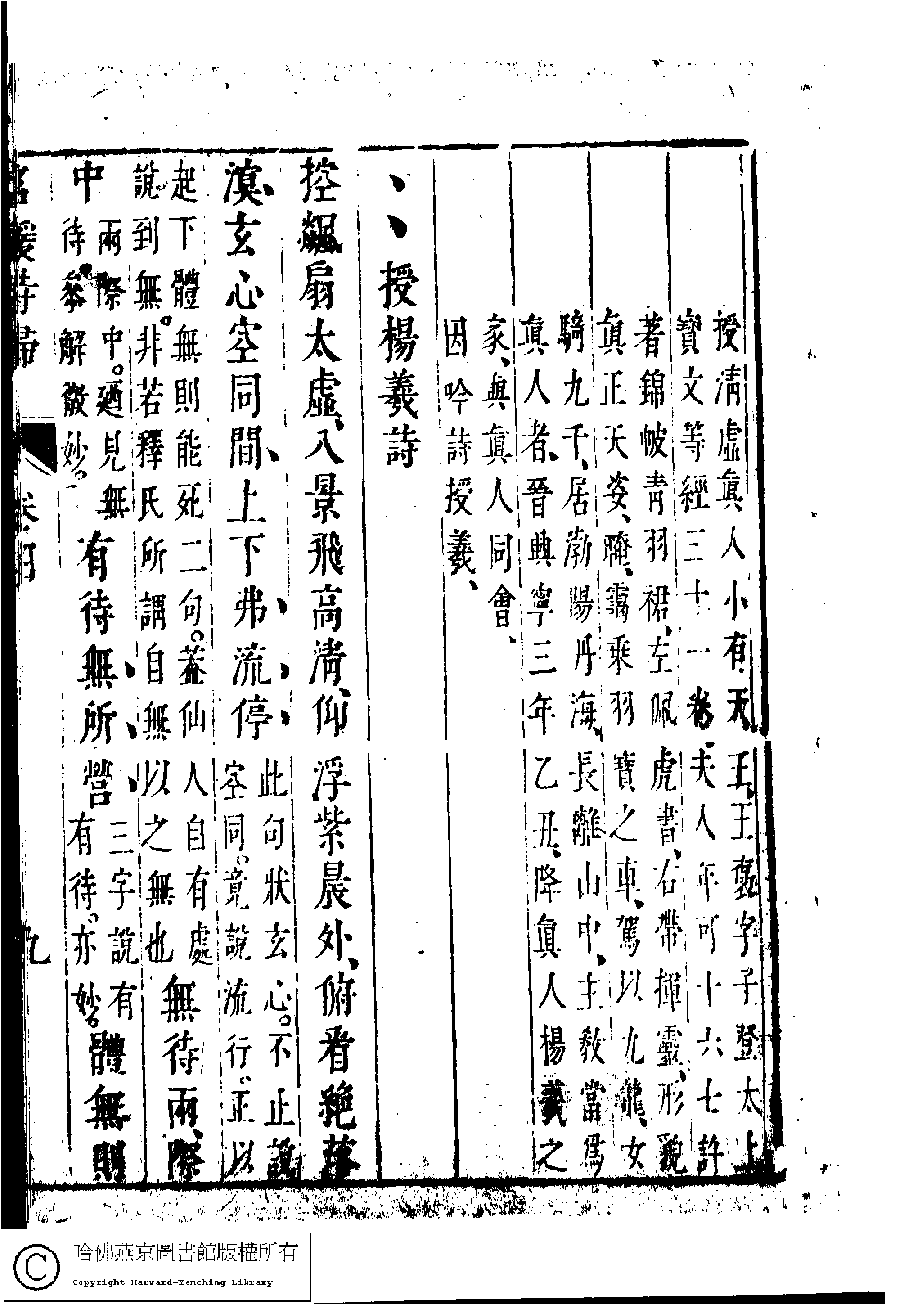 授清虛眞人小有天王王褒字子登太上
寶文等經三十一卷夫人年可十六七許
著錦帔青羽裙左佩虎書右帶揮靈形貌
眞正天姿晻靄乘羽寶之車駕以九龍女
騎九千居渤陽丹海長離山中主教當爲
眞人者晉興寧三年乙丑降眞人楊羲之
家與眞人同會
因吟詩授羲
授楊羲詩
控飊扇太虛八景飛高清仰浮紫晨外俯看絶落
漠玄心空同間上下弗流停此句狀玄心不止說
空同竟說流行正以
起下體無則能死二句葢仙人自有處
說到無非若釋氏所謂自無以之無也無待兩際
中兩際中廼見無
待叅解微妙有待無所營三字說有
有待亦妙體無則
名媛詩歸
卷四
九
哈佛燕京圖書館版權所有
Copyright Harvard-Yenching Library